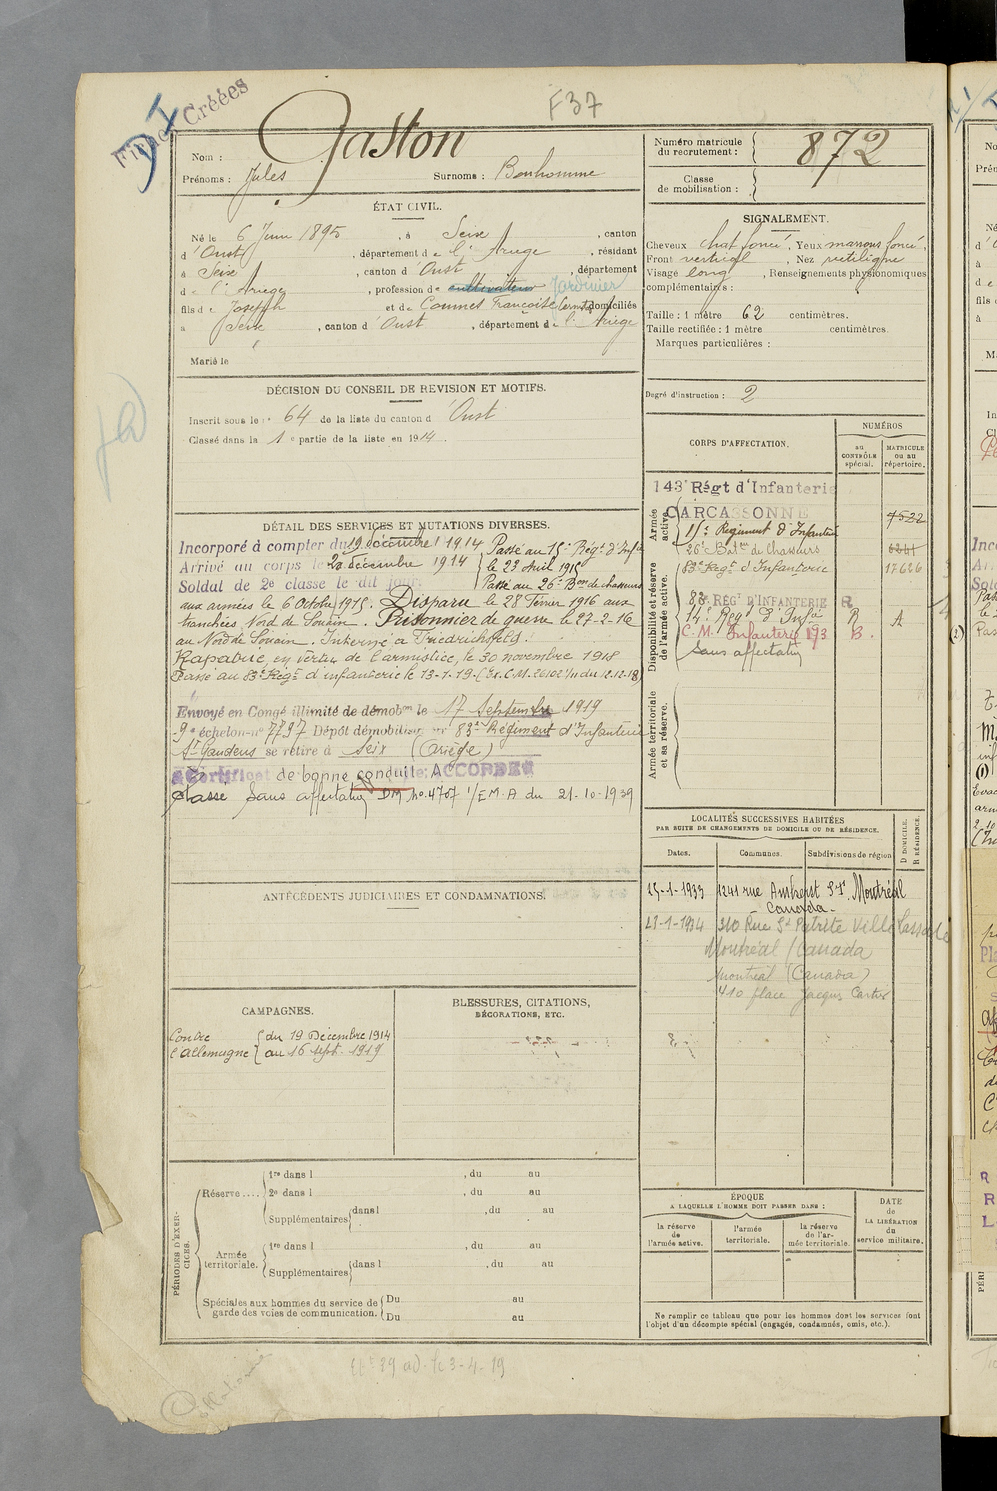 Fiches Créées
F37
Nom : Gaston
Prénoms : Jules Surnoms : Bonhomme
Numéro matricule du recrutement : 872
Classe de mobilisation :
ÉTAT CIVIL.
Né le 6 Juin 1895, à Seix, canton
d'Oust, département de l'Ariège, résidant
à Seix, canton d'Oust, département
de l'Ariège, profession de cultivateur Jardinier
fils de Joseph et de Coumet Françoise domiciliés
à Seix, canton d'Oust, département de l'Ariège
Marié le
SIGNALEMENT.
Cheveux chat foncé, Yeux marrons foncé,
Front vertical, Nez rectiligne
Visage long, Renseignements physionomiques
complémentaires :
Taille : 1 mètre 62 centimètres.
Taille rectifiée : 1 mètre centimètres.
Marques particulières :
Degré d'instruction : 2
DÉCISION DU CONSEIL DE REVISION ET MOTIFS.
Inscrit sous le n° 64 de la liste du canton d'Oust
Classé dans la 1e partie de la liste en 1914.
DÉTAIL DES SERVICES ET MUTATIONS DIVERSES.
Incorporé à compter du 19 décembre 1914 Passé au 15e Rég. d'Infie
Arrivé au corps le 20 décembre 1914 le 23 Avril 1915
Soldat de 2e classe le dit jour. Passé au 26e Bon de chasseurs
aux armées le 6 Octobre 1915. Disparu le 28 Février 1916 aux
tranchées Nord de Souain. Prisonnier de guerre le 27-2-16
au Nord de Souain. Interné à Friedrichsfeld.
Rapatrié, en vertu de l'armistice, le 30 novembre 1918
Passé au 83e Régt d'infanterie le 13-1-19 (Ex. C.M. 26102 1/11 du 12.12.18)
Envoyé en Congé illimité de démobon le 17 Septembre 1919
9e échelon no 7797 Dépôt démobilisateur 83e Régiment d'Infanterie
St Gaudens se retire à Seix (Ariège)
Certificat de bonne conduite ACCORDÉ
Classé Sans affectation DM No 4707 1/EM.A du 21-10-1939
CORPS D'AFFECTATION.
NUMÉROS
au CONTRÔLE spécial.
MATRICULE ou au répertoire.
Armée active.
143e Régt d'Infanterie
CARCASSONNE 7522
15e Régiment d'Infanterie
26e Baton de Chasseurs 6241
83e Régt d'Infanterie 17626
Disponibilité et réserve de l'armée active.
83e RÉGt D'INFANTERIE R
14e Régt d'Infie R A
C.M. Infanterie 173 B.
Sans affectation
Armée territoriale et sa réserve.
LOCALITÉS SUCCESSIVES HABITÉES
PAR SUITE DE CHANGEMENTS DE DOMICILE OU DE RÉSIDENCE.
Dates. Communes. Subdivisions de région
D DOMICILE. R RÉSIDENCE.
15-1-1933 1241 rue Amherst St. Montréal
Canada
23-1-1934 310 Rue St Patrice Ville Lassalle
Montréal (Canada
Montréal (Canada)
410 place Jacques Cartier
ANTÉCÉDENTS JUDICIAIRES ET CONDAMNATIONS.
CAMPAGNES.
Contre l'Allemagne du 19 Décembre 1914
au 16 Sept. 1919
BLESSURES, CITATIONS,
DÉCORATIONS, ETC.
PÉRIODES D'EXERCICES.
Réserve.... 1re dans l , du au
2e dans l , du au
Supplémentaires dans l , du au
Armée territoriale. 1re dans l , du au
Supplémentaires dans l , du au
Spéciales aux hommes du service de garde des voies de communication. Du au
Du au
ÉPOQUE
A LAQUELLE L'HOMME DOIT PASSER DANS :
la réserve de l'armée active.
l'armée territoriale.
la réserve de l'armée territoriale.
DATE de LA LIBÉRATION du service militaire.
Ne remplir ce tableau que pour les hommes dont les services font
l'objet d'un décompte spécial (engagés, condamnés, omis, etc.).